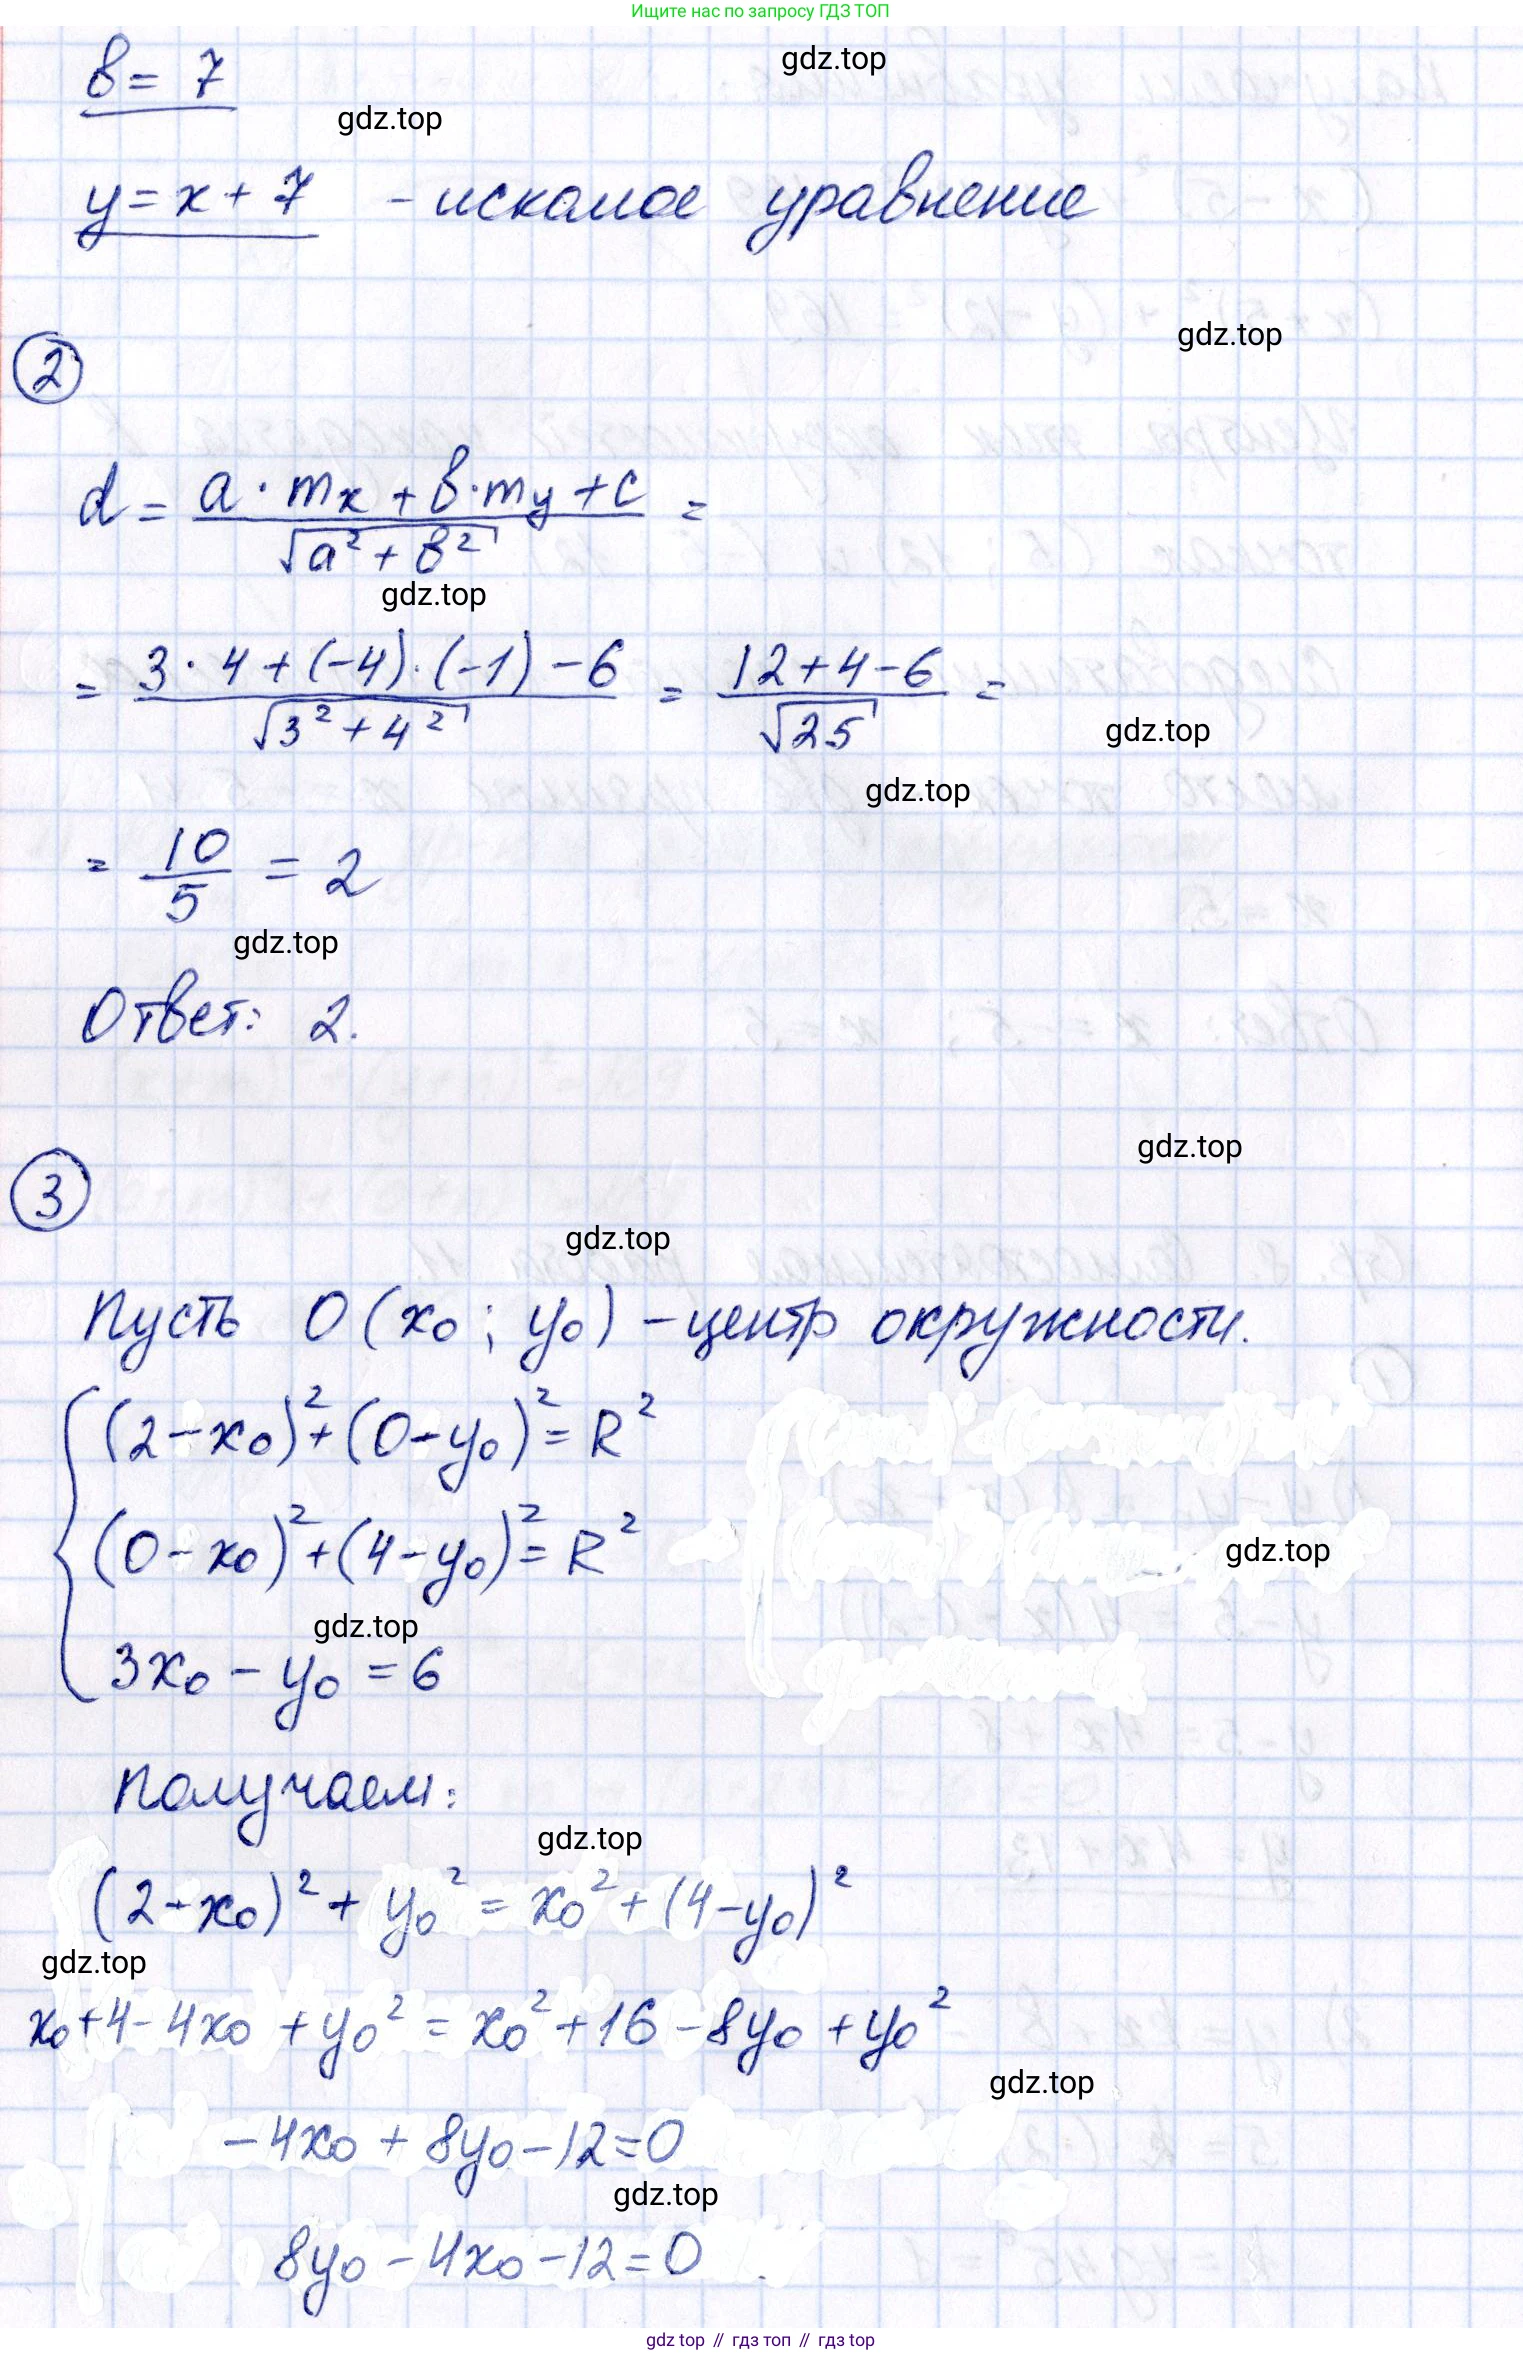 Ищите нас по запросу ГДЗ ТОП
в = 7
gdz.top
gdz.top
y = x + 7 - искомое уравнение
gdz.top
2
d = (a · mx + в · my + c) / √(a² + в²) =
gdz.top
= (3 · 4 + (-4) · (-1) - 6) / √(3² + 4²) = (12 + 4 - 6) / √25 =
gdz.top
gdz.top
= 10/5 = 2
gdz.top
Ответ: 2.
gdz.top
3
gdz.top
Пусть O (x₀ ; y₀) - центр окружности.
(2 - x₀)² + (0 - y₀)² = R²
(0 - x₀)² + (4 - y₀)² = R²
gdz.top
gdz.top
3x₀ - y₀ = 6
Получаем:
gdz.top
(2 - x₀)² + y₀² = x₀² + (4 - y₀)²
gdz.top
x₀ + 4 - 4x₀ + y₀² = x₀² + 16 - 8y₀ + y₀²
gdz.top
- 4x₀ + 8y₀ - 12 = 0
gdz.top
8y₀ - 4x₀ - 12 = 0
gdz top // гдз топ // гдз top